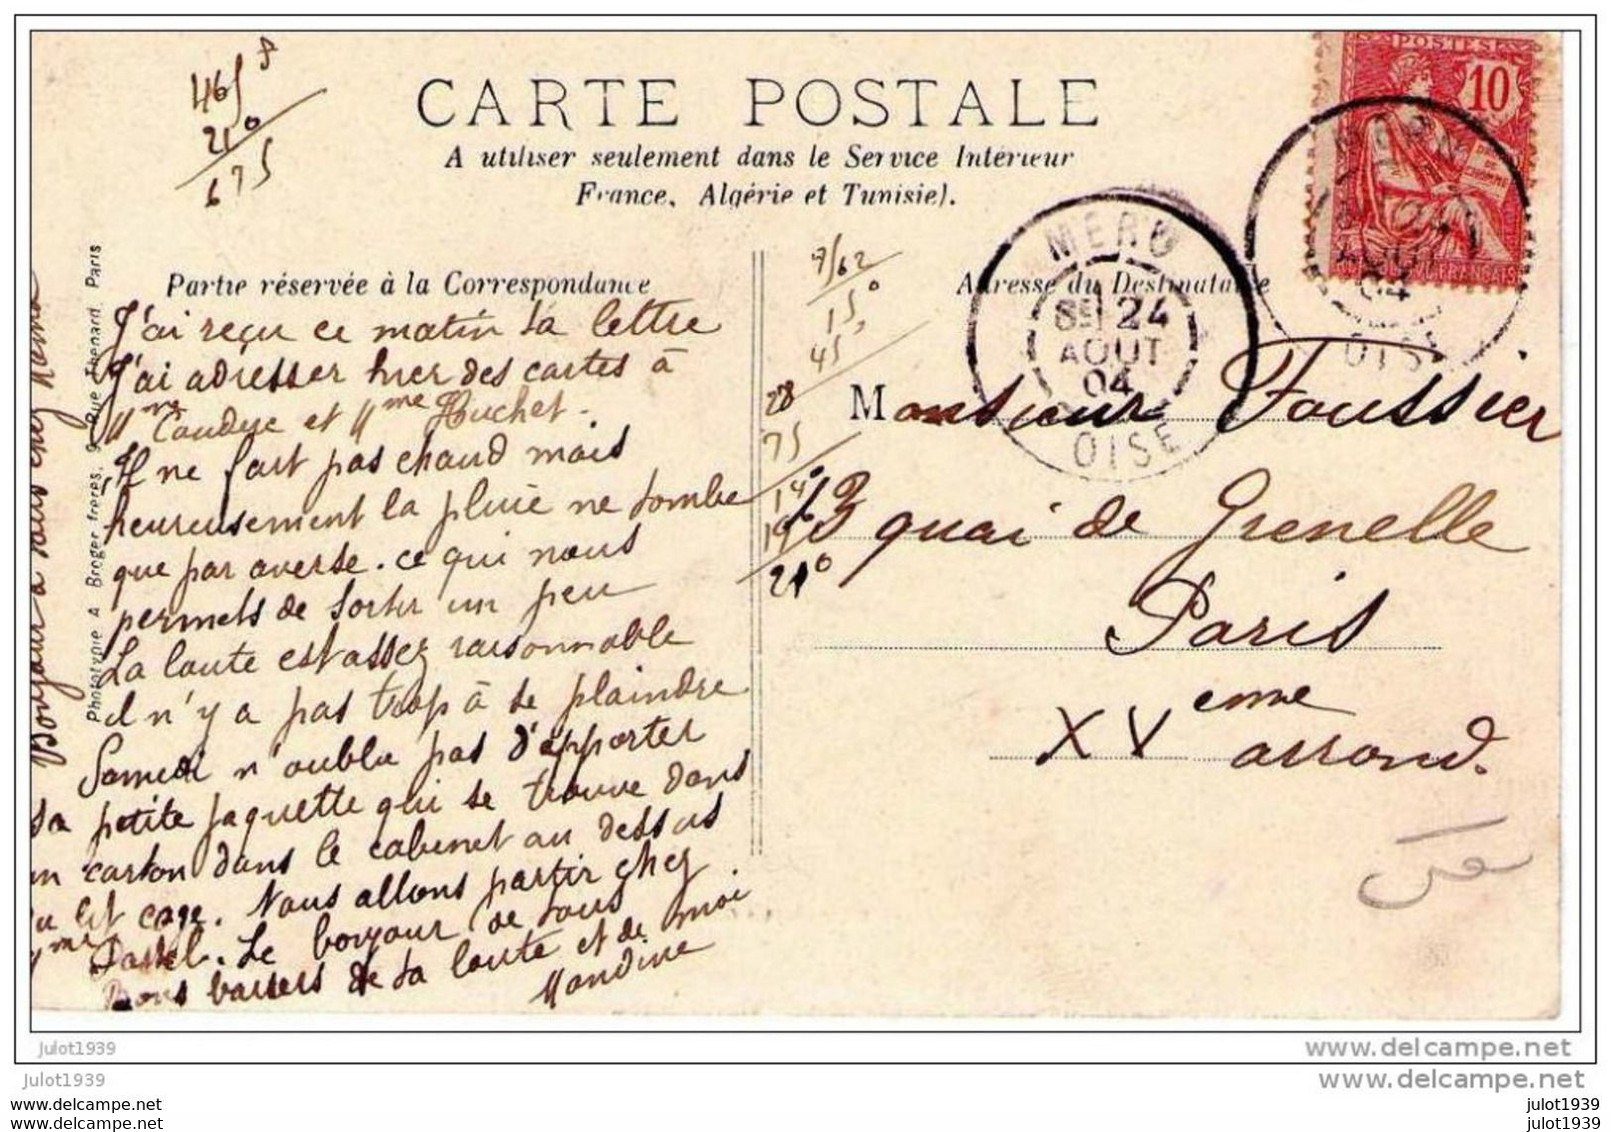 465
210
675
CARTE POSTALE
A utiliser seulement dans le Service Intérieur
France, Algérie et Tunisie).
POSTES
10
MERU
24
AOUT
04
OISE
AOUT
04
OISE
Partie réservée à la Correspondance
J'ai reçu ce matin ta lettre
J'ai adresser hier des cartes à
Mme et Mme Huchet.
Il ne fait pas chaud mais
heureusement la pluie ne tombe
que par averse. ce qui nous
permets de sortir un peu
La loute est assez raisonnable
il n'y a pas trop à se plaindre
Samedi n'oublie pas d'apporter
sa petite jaquette qui se trouve dans
un carton dans le cabinet au dessus
du lit cage. Nous allons partir chez
Mme Le bonjour de tous
Bons baisers de ta loute et de moi
Nandine
Bonjour à tous chez
Phototypie A Breger frères, 9 Rue Thenard, Paris
7/62
150
45
28
75
140
190
210
Adresse du Destinataire
Monsieur Foussier
13 quai de Grenelle
Paris
XVeme arrond.
julot1939
www.delcampe.net
julot1939
www.delcampe.net
www.delcampe.com
julot1939
www.delcampe.com
julot1939